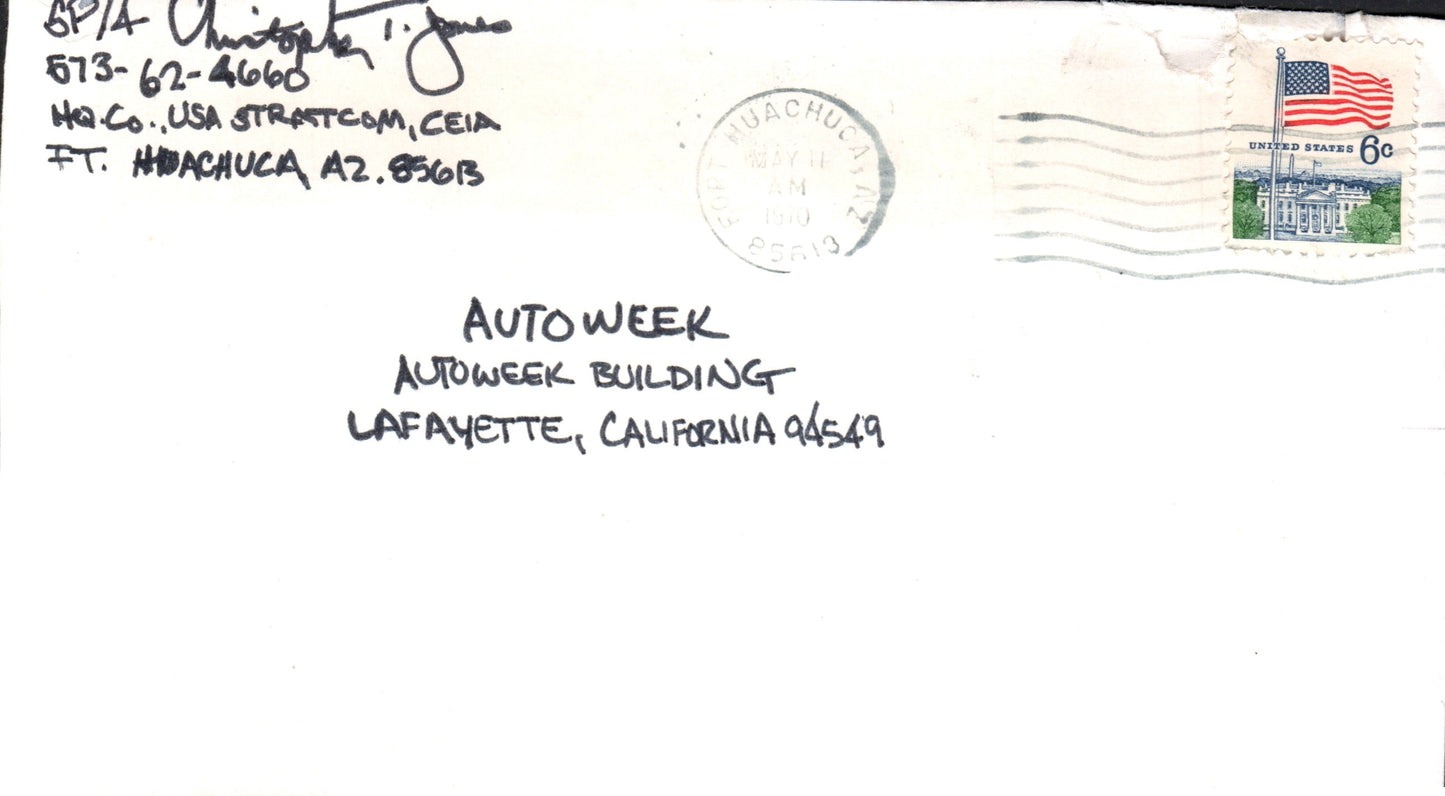 SP/4 Christopher T. Jones
573-62-4660
HQ. CO., USA STRATCOM, CEIA
FT. HUACHUCA, AZ. 85613
FORT HUACHUCA, AZ
MAY 11
AM
1970
85613
UNITED STATES 6c
AUTOWEEK
AUTOWEEK BUILDING
LAFAYETTE, CALIFORNIA 94549